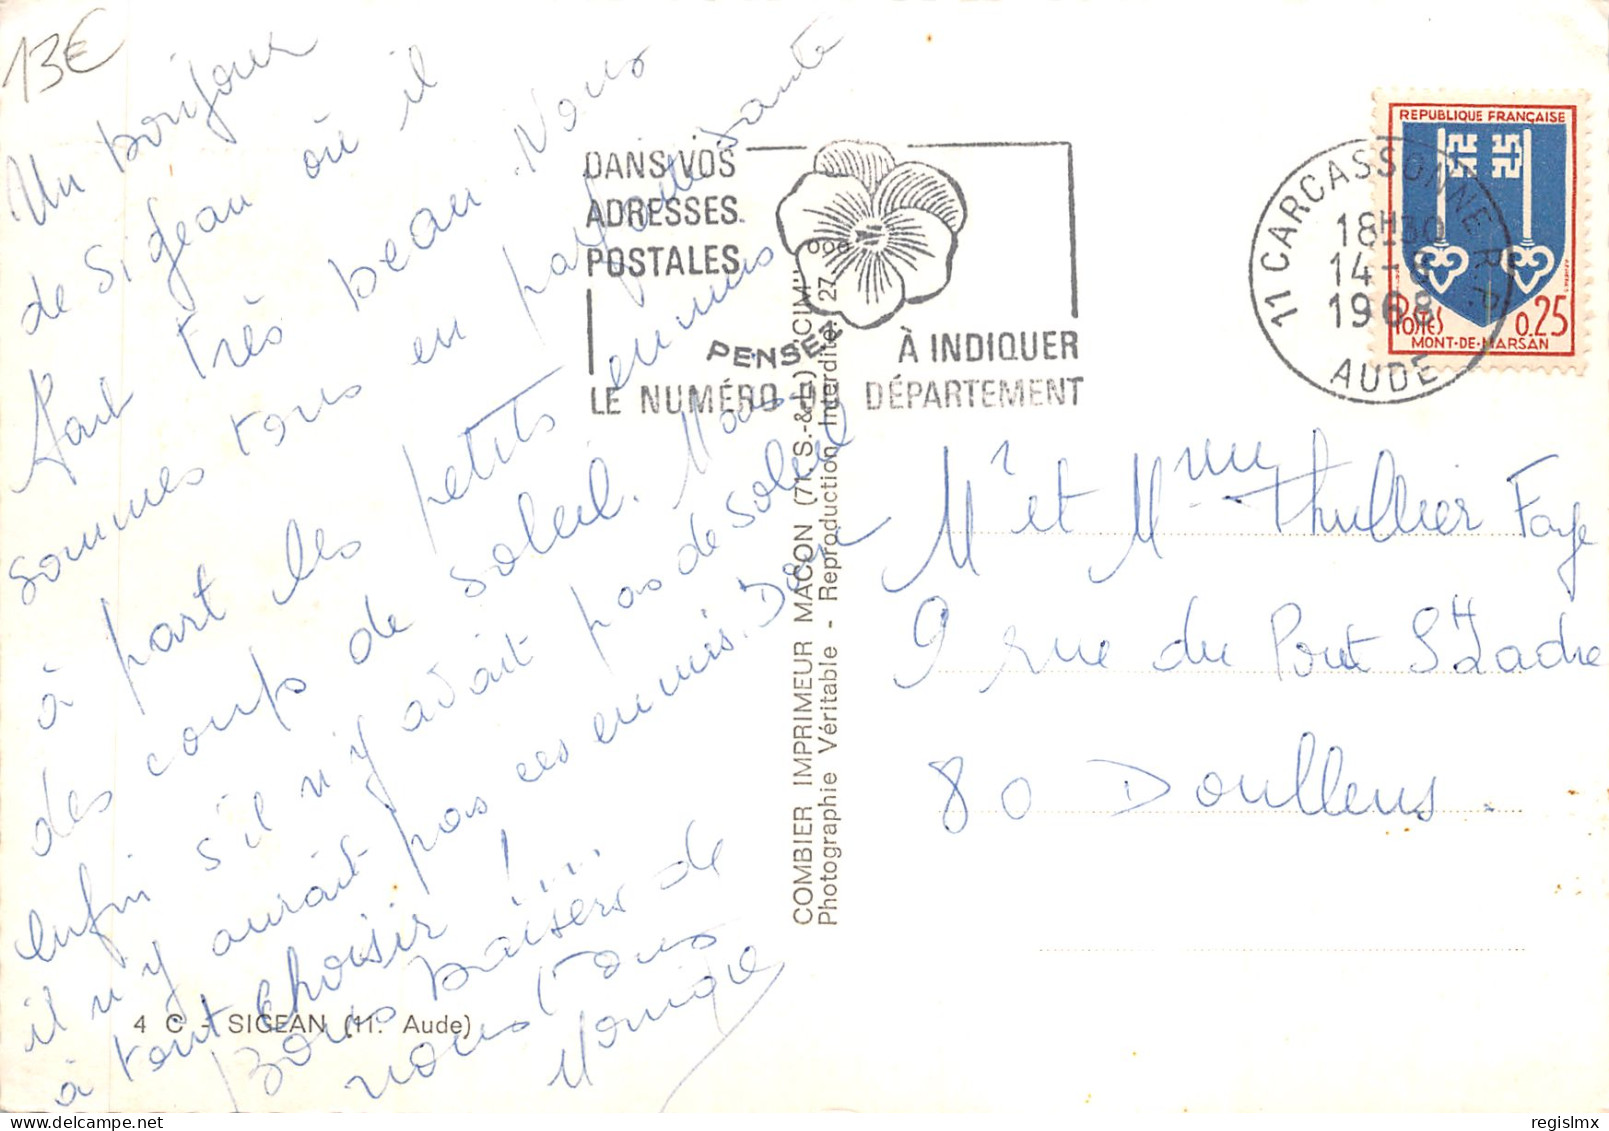 13€
Un bonjour
de Sigean où il
fait très beau. Nous
sommes tous en parfaite santé
à part les petits ennuis
des coups de soleil. Mais
enfin s'il n'y avait pas de soleil
il n'y aurait pas ces ennuis. Donc
à tout choisir !....
Bons baisers de
nous tous
Monique
4 C - SIGEAN (11. Aude)
COMBIER IMPRIMEUR MACON (71. S.-&-L.) "CIM"
Photographie Véritable - Reproduction Interdite. 27-000
DANS VOS
ADRESSES
POSTALES
PENSEZ
À INDIQUER
LE NUMÉRO DU DÉPARTEMENT
11 CARCASSONNE R.P.
18H30
14-8
1968
AUDE
REPUBLIQUE FRANÇAISE
POSTES 0.25
MONT-DE-MARSAN
Mr et Mme Thullier Faye
9 rue du Pont St Ladre
80 Doullens.
regislmx